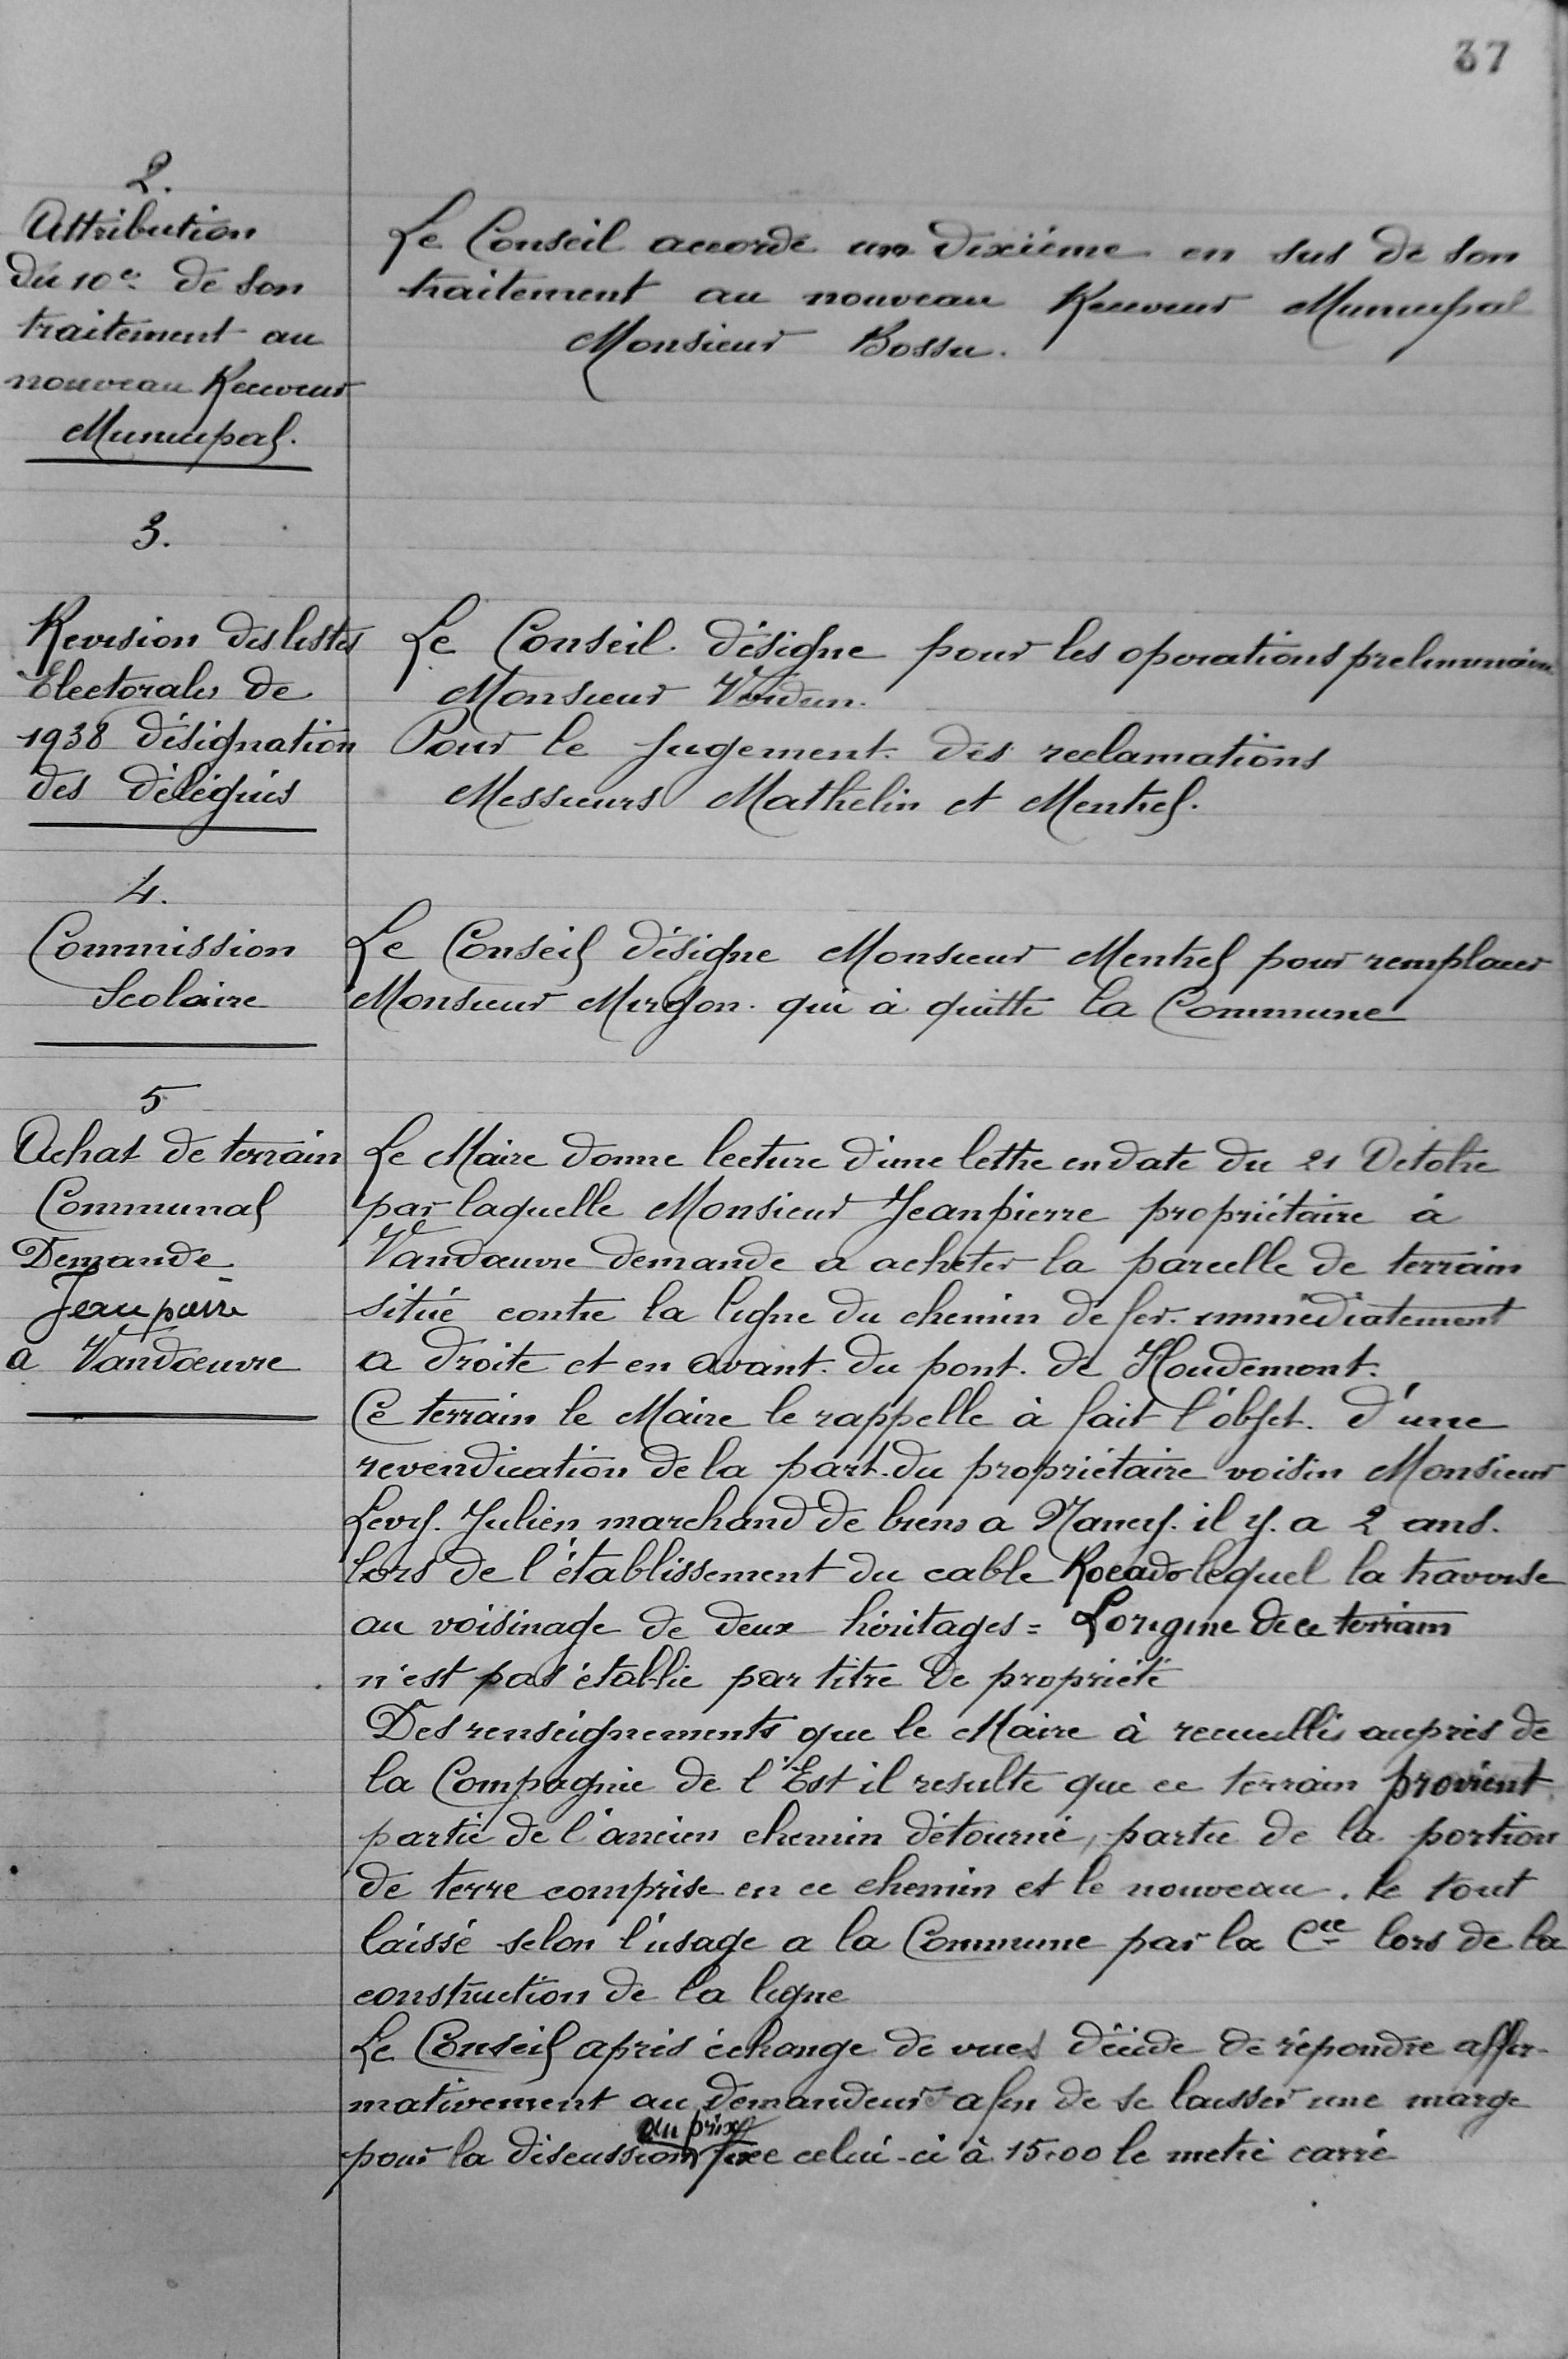 37
2.
Attribution
du 10e de son
traitement au
nouveau Receveur
Municipal.
Le Conseil accorde un dixième en sus de son
traitement au nouveau Receveur Municipal
Monsieur Bossu.
3.
Revision des listes
Electorales de
1938 désignation
des délégués
Le Conseil désigne pour les operations preliminaires
Monsieur Verdun.
Pour le jugement des reclamations
Messieurs Mathelin et Mentrel.
4.
Commission
Scolaire
Le Conseil désigne Monsieur Mentrel pour remplacer
Monsieur qui à quitté la Commune
5
Achat de terrain
Communal
Demande
Jeanpierre
a Vandœuvre
Le Maire donne lecture d'une lettre en date du 21 Octobre
par laquelle Monsieur Jeanpierre propriétaire à
Vandœuvre demande a acheter la parcelle de terrain
située contre la ligne du chemin de fer immédiatement
a droite et en avant du pont de Houdemont.
Ce terrain le Maire le rappelle à fait l'objet d'une
revendication de la part du propriétaire voisin Monsieur
Levy Julien marchand de biens a Nancy il y a 2 ans.
lors de l'établissement du cable Rocade lequel la traverse
au voisinage de deux héritages = Lorigine de ce terrain
n'est pas établie par titre de propriété
Des renseignements que le Maire à recueillis auprès de
la Compagnie de l'Est il resulte que ce terrain provient
partie de l'ancien chemin détourné, partie de la portion
de terre comprise en ce chemin et le nouveau. le tout
laissé selon l'usage a la Commune par la Cie lors de la
construction de la ligne
Le Conseil après échange de vues décide de répondre affir-
mativement au demandeur afin de se laisser une marge
pour la discussion du prix fixe celui-ci à 15.00 le metre carré